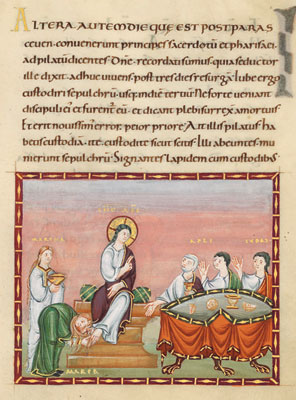 ALTERA AUTEM DIE QUE EST POST PARAS
ceuen convenerunt principes sacerdotū et pharisaei
ad pilatū dicentes Dn̄e recordati sumus quia seductor
ille dixit adhuc uiuens post tres dies resurgā. Iube ergo
custodiri sepulchrū usq; in diē tertiū. Ne forte ueniant
discipuli ei' et furent' eū. et dicant plebi surrex a mortuis
Et erit nouissim' error peior priore. Ait illis pilatus ha
betis custodiā. ite. custodite sicut scitis. Illi abeuntes mu
nierunt sepulchrū. Signantes lapidem cum custodib;
MARTHA
APLI
IUDAS
MARIA